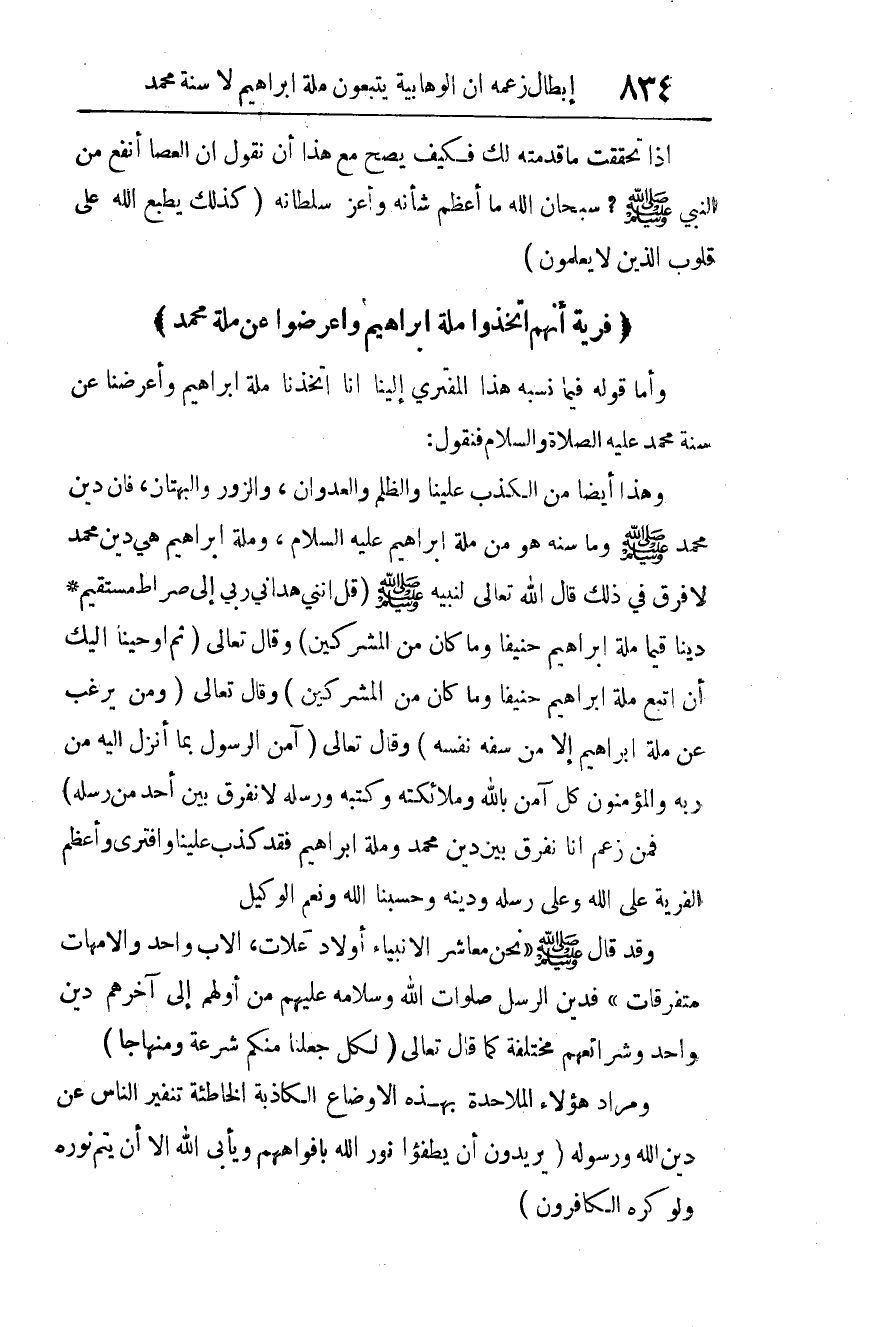 ٨٣٤ إبطال زعمه ان الوهابية يتبعون ملة ابراهيم لا سنة محمد
اذا تحققت ماقدمته لك فكيف يصح مع هذا أن نقول ان العصا أنفع من
النبي ﷺ ؟ سبحان الله ما أعظم شأنه وأعز سلطانه ( كذلك يطبع الله على
قلوب الذين لايعلمون )
﴿ فرية أنهم اتخذوا ملة ابراهيم واعرضوا عن ملة محمد ﴾
وأما قوله فيما نسبه هذا المفتري إلينا انا اتخذنا ملة ابراهيم وأعرضنا عن
سنة محمد عليه الصلاة والسلام فنقول:
وهذا أيضا من الكذب علينا والظلم والعدوان ، والزور والبهتان، فان دين
محمد ﷺ وما سنه هو من ملة ابراهيم عليه السلام ، وملة ابراهيم هي دين محمد
لافرق في ذلك قال الله تعالى لنبيه ﷺ (قل انني هداني ربي إلى صراط مستقيم*
دينا قيما ملة ابراهيم حنيفا وما كان من المشركين) وقال تعالى ( ثم اوحينا اليك
أن اتبع ملة ابراهيم حنيفا وما كان من المشركين ) وقال تعالى ( ومن يرغب
عن ملة ابراهيم إلا من سفه نفسه ) وقال تعالى ( آمن الرسول بما أنزل اليه من
ربه والمؤمنون كل آمن بالله وملائكته وكتبه ورسله لانفرق بين أحد من رسله)
فمن زعم انا نفرق بين دين محمد وملة ابراهيم فقد كذب علينا وافترى وأعظم
الفرية على الله وعلى رسله ودينه وحسبنا الله ونعم الوكيل
وقد قال ﷺ «نحن معاشر الانبياء أولاد علات، الاب واحد والامهات
متفرقات » فدين الرسل صلوات الله وسلامه عليهم من أولهم إلى آخرهم دين
واحد وشرائعهم مختلفة كما قال تعالى ( لكل جعلنا منكم شرعة ومنهاجا )
ومراد هؤلاء الملاحدة بهذه الاوضاع الكاذبة الخاطئة تنفير الناس عن
دين الله ورسوله ( يريدون أن يطفؤا نور الله بافواههم ويأبى الله الا أن يتم نوره
ولو كره الكافرون )